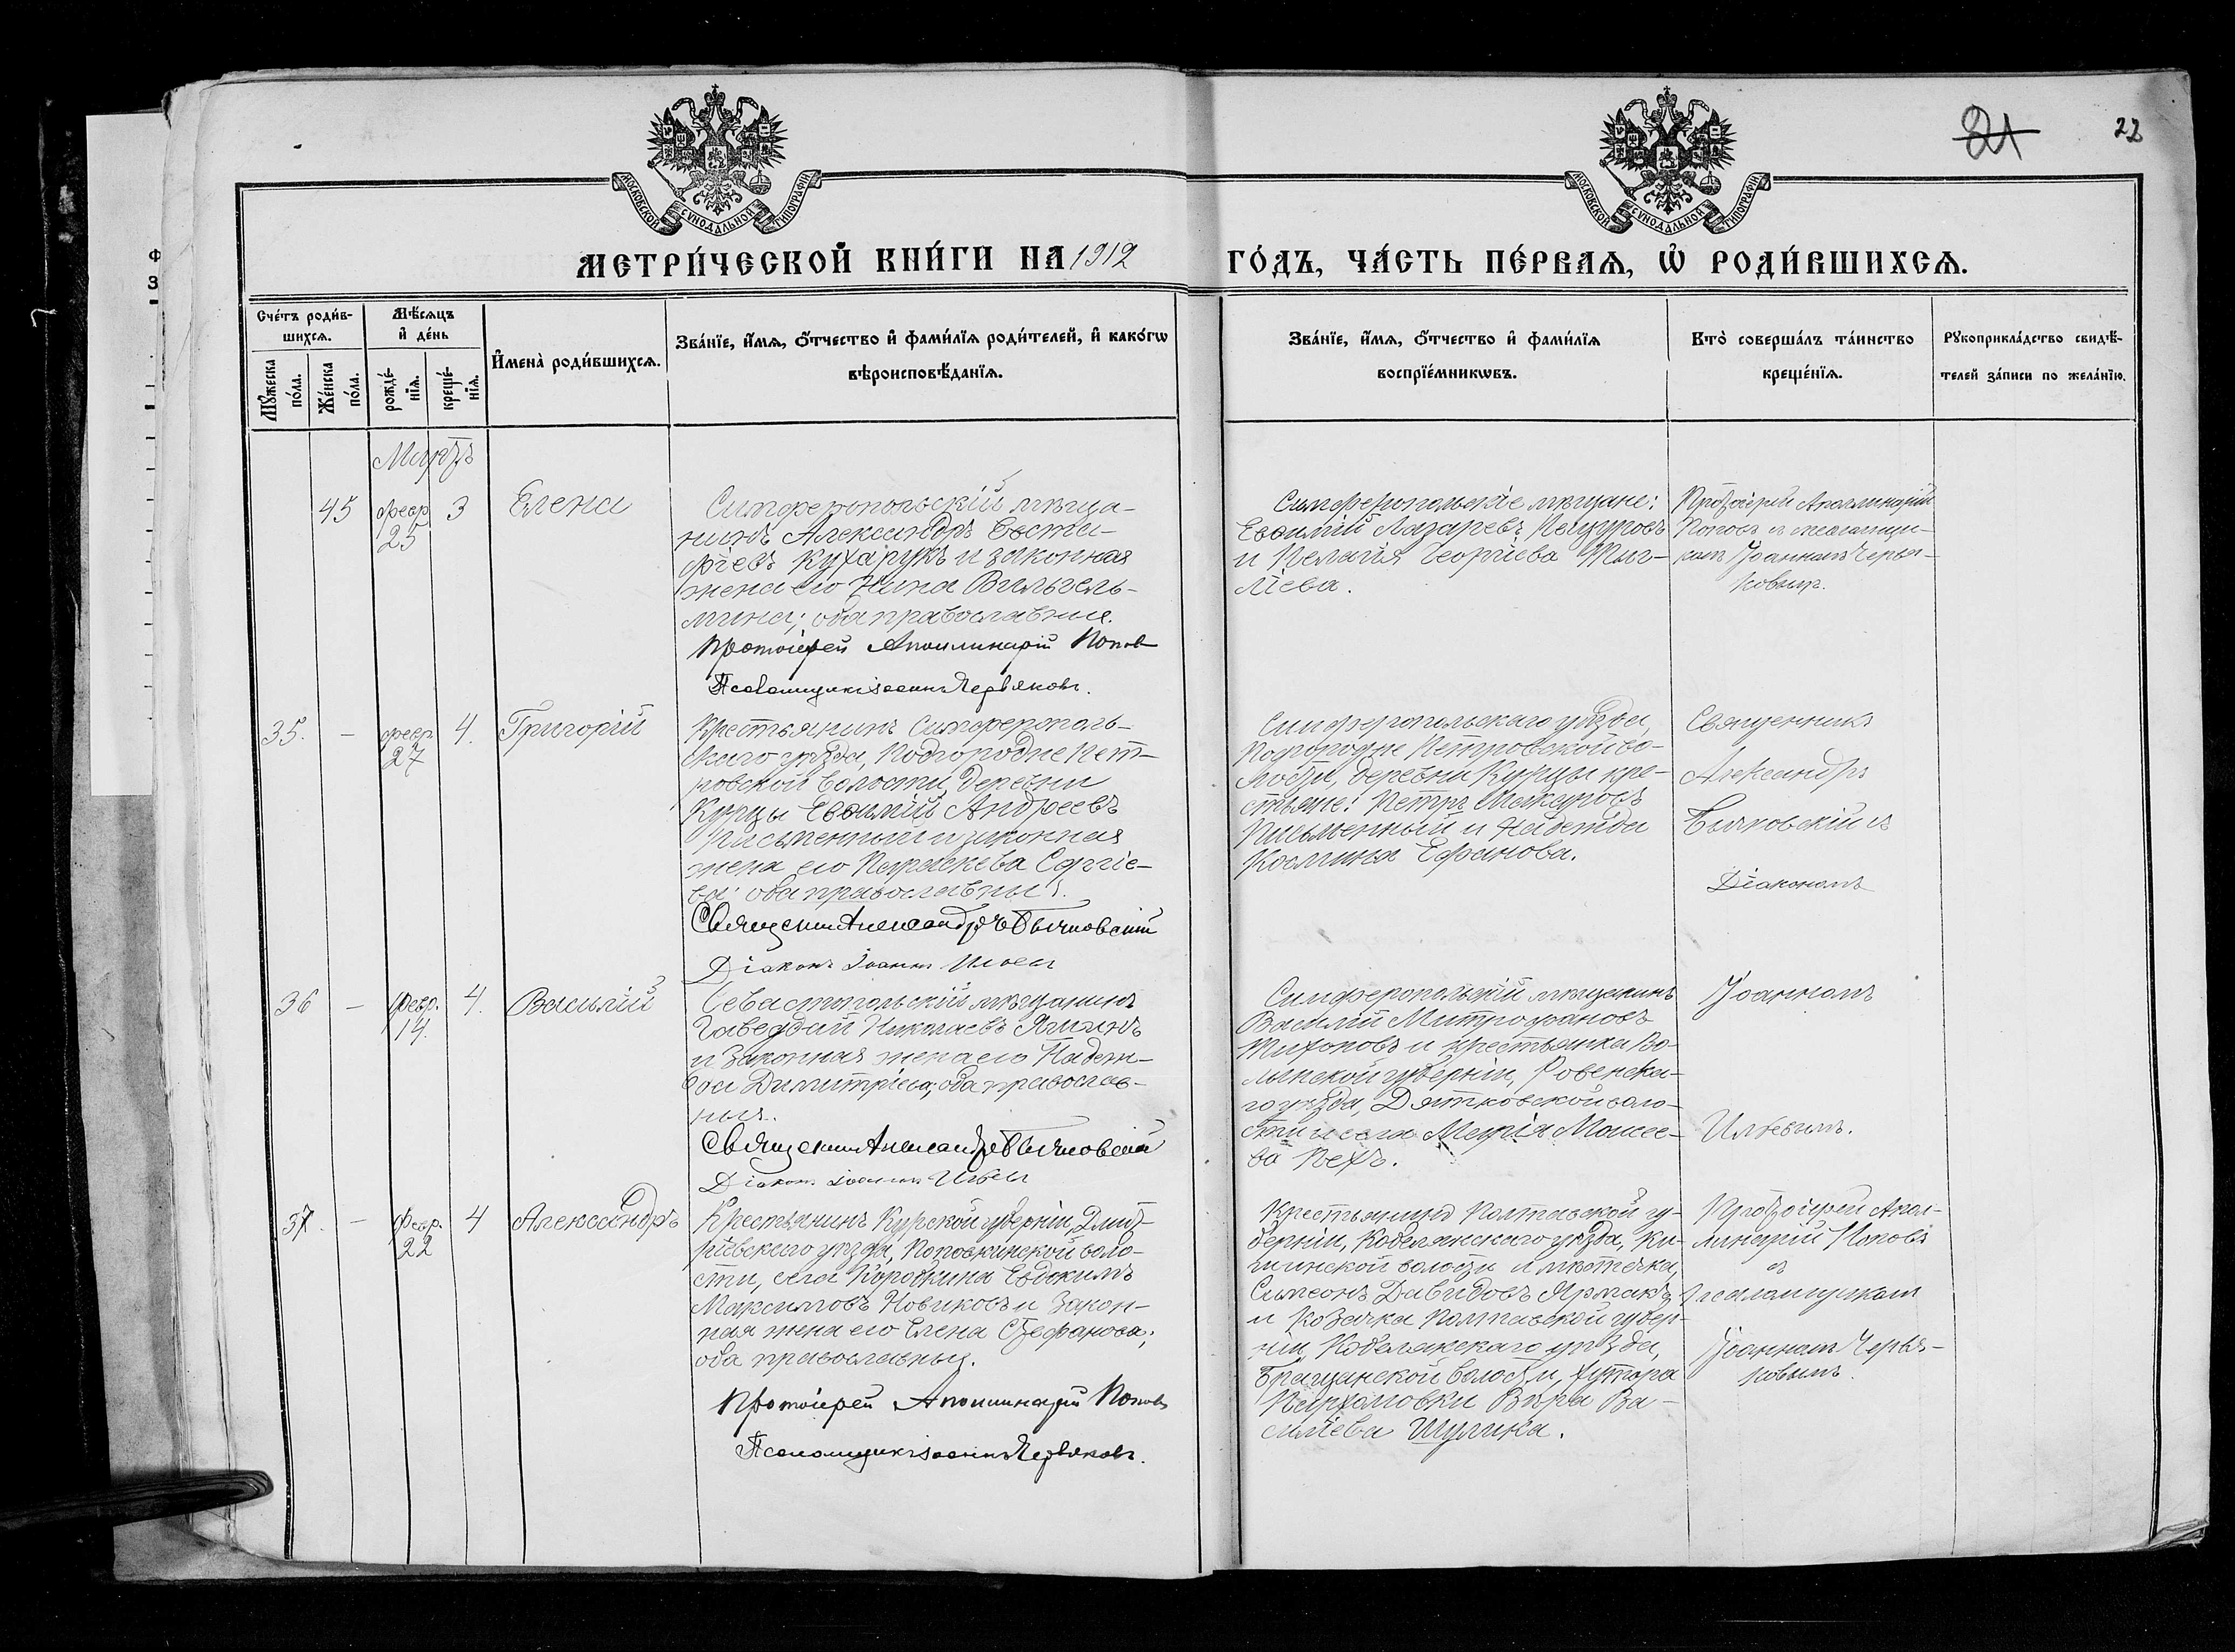 21
22
МОСКОВСКОЙ СУНОДАЛЬНОЙ ТИПОГРАФІИ
МОСКОВСКОЙ СУНОДАЛЬНОЙ ТИПОГРАФІИ
МЕТРИ́ЧЕСКОЙ КНИ́ГИ НА 1912 ГО́ДЪ, ЧА́СТЬ ПЕ́РВАѦ, Ѡ РОДИ́ВШИХСѦ.
Сче́тъ роди́в-
шихсѧ.
Мꙋжеска
по́ла.
Же́нска
по́ла.
Мѣ́сѧцъ
и де́нь
рожде́-
нїѧ.
креще́-
нїѧ.
Имена̀ роди́вшихсѧ.
Зва́нїе, и́мѧ, о́тчество и фами́лїѧ роди́телей, и како́гѡ
вѣроисповѣ́данїѧ.
Зва́нїе, и́мѧ, о́тчество и фами́лїѧ
воспрїе́мникѡвъ.
Кто̀ соверша́лъ та́инство
креще́нїѧ.
Рꙋкоприкла́дство свидѣ́-
телей за́писи по жела́нїю.
Мартъ
45
февр
25
3
Елена
Симферопольскій мѣща-
нинъ Александръ Евста-
фіевъ Кухарукъ и законная
жена его Нина Вильгель-
мина; оба православные.
Протоіерей Аполлинарій Попов
Псаломщикъ Іоаннъ Червяковъ.
Симферопольскіе мѣщане:
Евѳимій Лазаревъ
и Пелагія Георгіева
ліева.
Протоіерей Аполлинарій
Поповъ съ псаломщи-
комъ Іоанномъ Червя-
ковымъ.
35.
-
февр
27
4.
Григорій
Крестьянинъ Симферополь-
скаго уѣзда, Подгородне Пет-
ровской волости, деревни
Курцы Евѳимій Андреевъ
Письменный и законная
жена его Параскева Сергіе-
ва; оба православны.
Священник Александръ Бычковскій
Діаконъ Іоаннъ Ильев
Симферопольскаго уѣзда,
Подгородне Петровской во-
лости, деревни Курцы кре-
стьяне: Петръ Макаровъ
Письменный и Надежда
Космина Ефанова.
Священникъ
Александръ
Бычковскій съ
Діакономъ
36
-
февр.
14.
4.
Василій
Севастопольскій мѣщанинъ
Николаевъ
и законная жена его Надеж-
да Димитріева; оба православ-
ныя.
Священник Александръ Бычковскій
Діаконъ Іоаннъ Ильев
Симферопольскій мѣщанинъ
Василій Митрофановъ
Тихоновъ и крестьянка Во-
лынской губерніи, Ровенска-
го уѣзда, Дятковской воло-
сти и села Марія Моисее-
ва Пехъ.
Іоанномъ
Ильевымъ.
37.
-
Февр.
22
4
Александръ
Крестьянинъ Курской губерніи, Дмит-
ріевскаго уѣзда, Поповкинской воло-
сти, села Коробкина Евдокимъ
Максимовъ Новиковъ и закон-
ная жена его Елена Стефанова;
оба православны.
Протоіерей Аполлинарій Поповъ
Псаломщикъ Іоаннъ Червяковъ.
Крестьянинъ Полтавской гу-
берніи, Кобелякскаго уѣзда, Ки-
шинской волости и мѣстечка,
Симеонъ Давидовъ Ярмакъ
и козачка Полтавской губер-
ніи, Кобелякскаго уѣзда,
волости, хутора
Пархомовки Вѣра Ва-
силіева Шулика.
Протоіерей Апол-
линарій Поповъ
съ
псаломщикомъ
Іоанномъ Червя-
ковымъ.